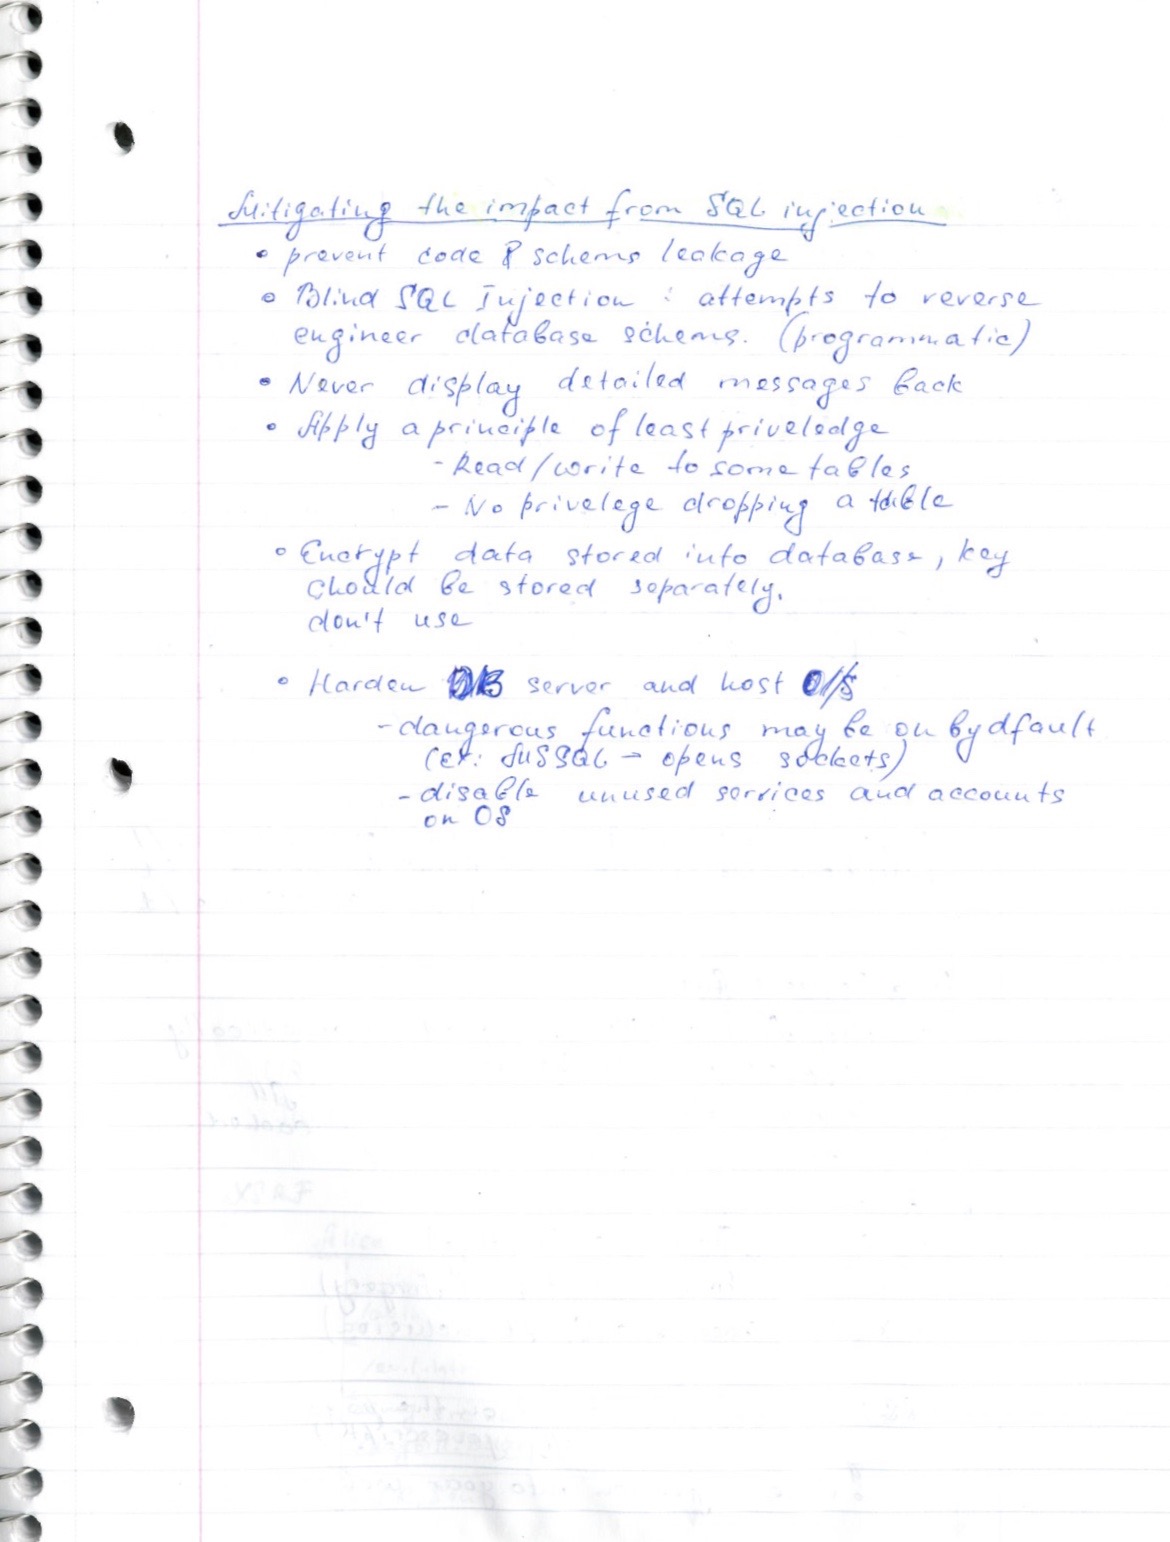 Mitigating the impact from SQL injection
• prevent code & schema leakage
• Blind SQL Injection : attempts to reverse
engineer database schema. (programmatic)
• Never display detailed messages back
• Apply a principle of least priveledge
- Read/write to some tables
- No privelege dropping a table
• Encrypt data stored into database, key
should be stored separately.
don't use
• Harden DB server and host O/S
- dangerous functions may be on by dfault
(ex: MSSQL - opens sockets)
- disable unused services and accounts
on OS